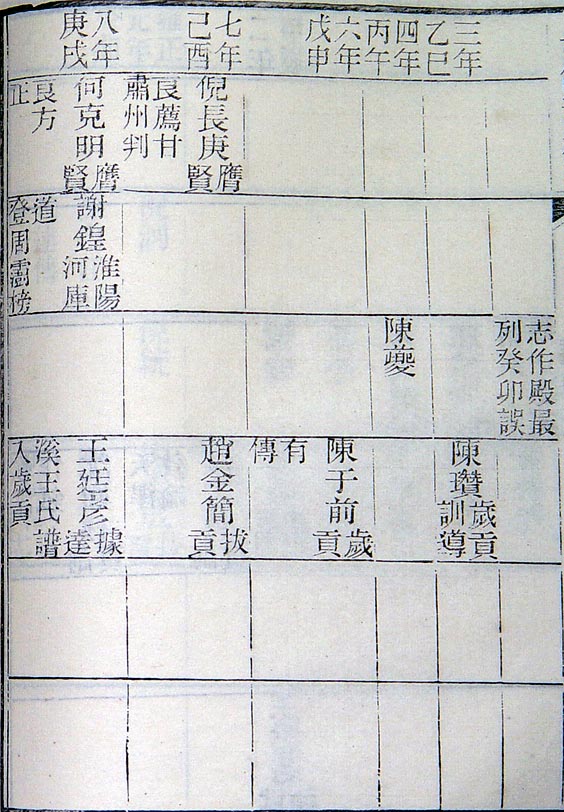 三年乙巳
四年丙午
六年戊申
七年己酉
八年庚戌
倪長庚膺賢
良薦甘肅州判
何克明膺賢
良方正
謝鍠淮陽河庫
道登周榜
志作殿最列癸卯誤
陳夔
陳瓚歲貢訓導
陳于前歲貢
有傳
趙金簡拔貢
王廷彥據達
溪王氏譜入歲貢